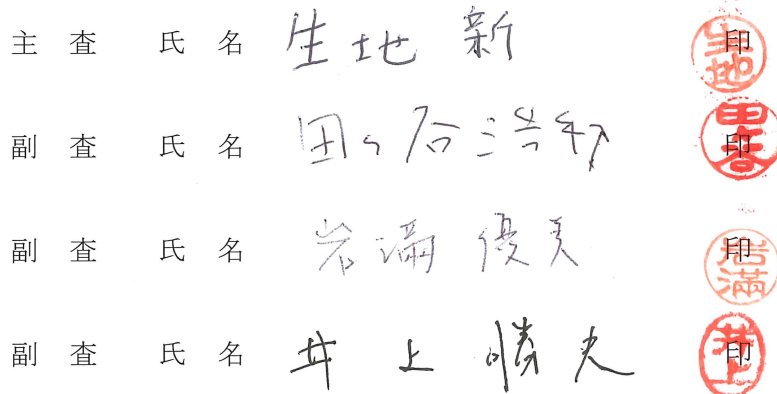 主 査 氏 名 生地 新 印 生地
副 査 氏 名 田ヶ谷浩邦 印
副 査 氏 名 岩満 優美 印 岩満
副 査 氏 名 井上 勝夫 印 井上